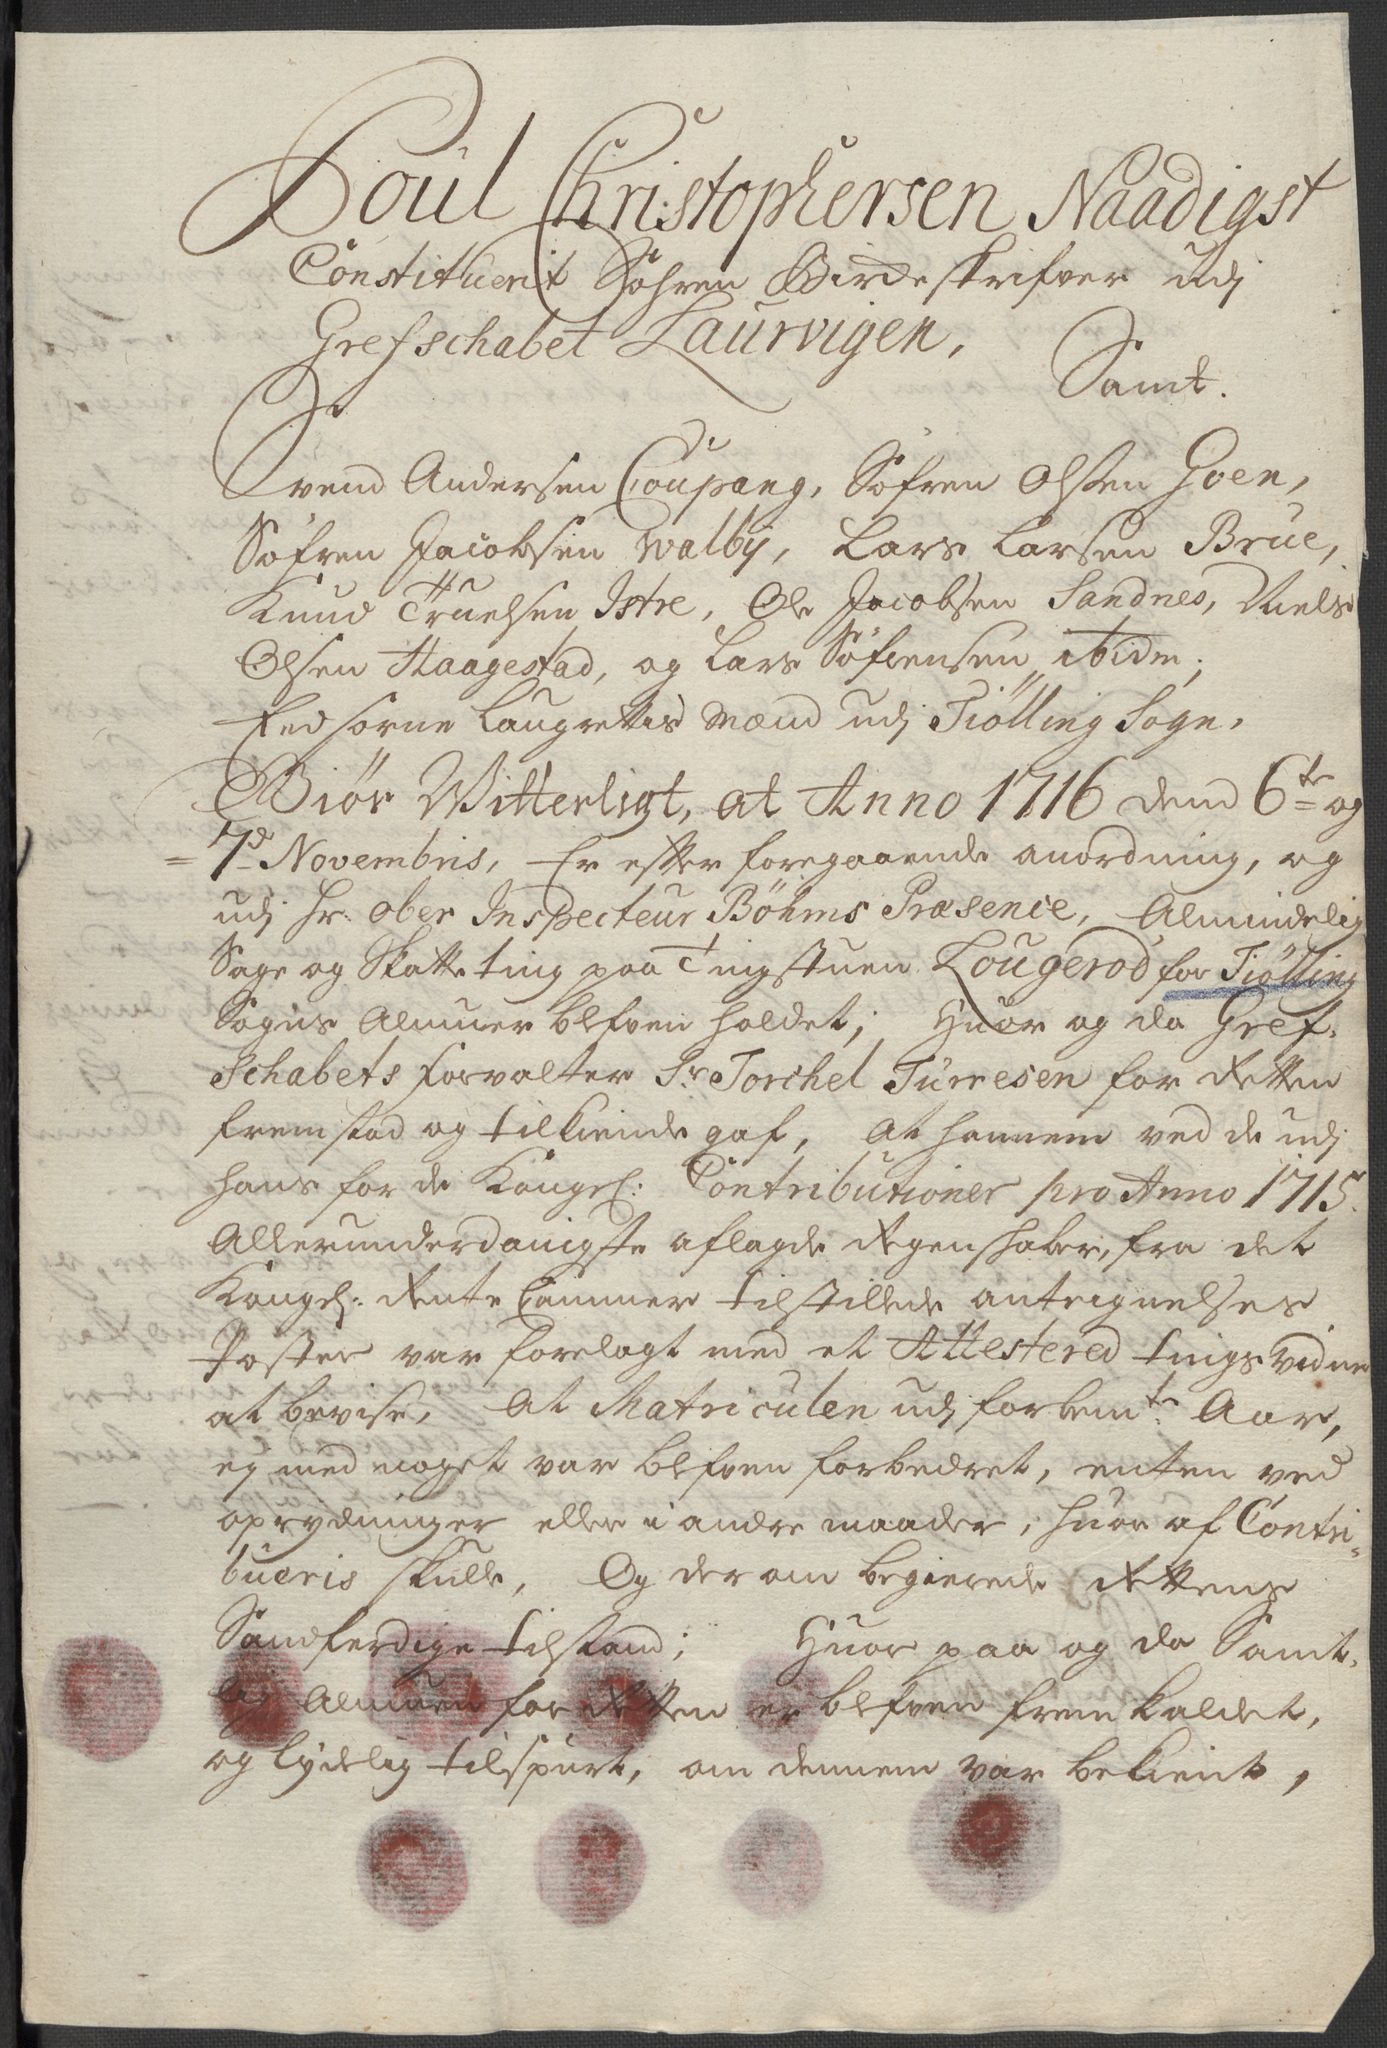 Poul Christophersen Naadigst
Constituerit Sohren Birdeskrifver udj
Grefschabet Laurvigen,
Samt.
Svend Andersen Coupang, Söfren Olsen Goen,
Söfren Jacobsen Walbÿ, Lars Larsen Brue,
Knud Truelsen Istre, Ole Jacobsen Sandnes, Niels
Olsen Haagestad, og Lars Söfrensen ibidm;
Eedsorne Laugrettis Mænd udj Tiölling Sogn,
Giör Witterligt, at Anno 1716 dend 6te og
= 7de Novembris, Er efter foregaaende anordning, og
udj Hr: Ober Inspecteur Böhms Præsence, Almindelig
Sage og Skatte ting paa Tingstuen Lougerod for Tiölling
Sogns Almue blefven holdet; Huor og da Gref-
schabets Forvalter Sr Torchel Turresen for Retten
fremstod og tilkiende gaf, At hannem ved de udj
hans for de Kongel: Contributioner pro Anno 1715.
Allerunderdanigste aflagde Regenskaber, fra det
Kongel: Rente Cammer tilstillede antegnelses
Poster var forelagt med et Attestered tingsvidne
at bevise, At Matriculen udj forbemte Aar,
ej med noget var blefven forbedret, enten ved
oprydninger eller i andre maader, huor af Contri-
bueris skulle, Og der om begierede Rettens
Sandferdige tilstand; Huor paa og da Samt-
lig Almuen for Retten er blefven frem kaldet,
og lydelig tilspurt, om dennem var bekient,